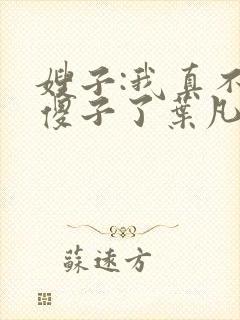 嫂子:我真不
傻子了葉凡
蘇遠方